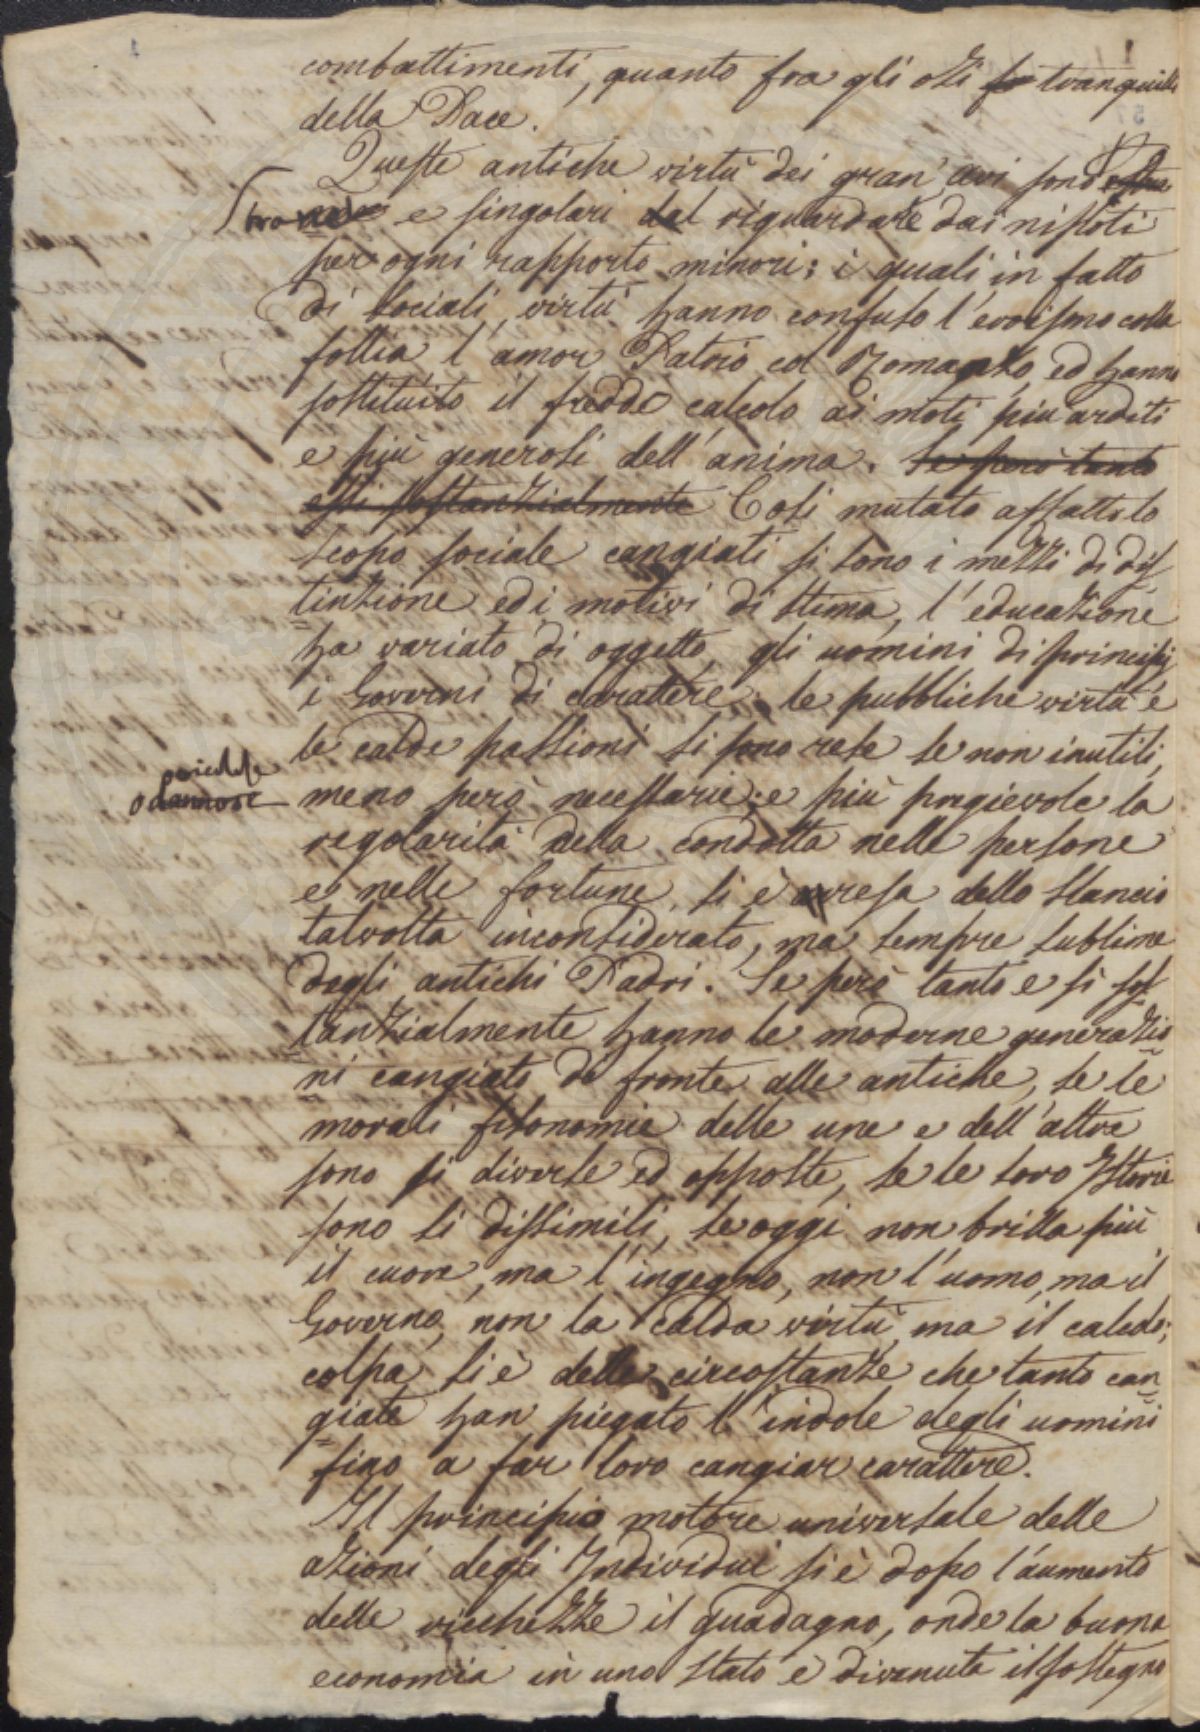 combattimenti, quanto fra gli ozi tranquilli
della Pace.
Queste antiche virtù dei gran avi sono
strane e singolari dal riguardare dai nipoti
per ogni rapporto minori; i quali in fatto
di sociali virtù hanno confuso l'eroismo colla
follia l'amor Patrio col Romanzo ed hanno
sostituito il freddo calcolo ai moti più arditi
e più generosi dell'anima. Se però tanto
essi sostanzialmente Così mutato affatto lo
scopo sociale cangiati si sono i mezzi di dis
tinzione ed i motivi di stima, l'educazione
ha variato di oggetto, gli uomini di principj
i Governi di carattere; le pubbliche virtù e
le calde passioni si sono rese se non inutili,
pericolose
o dannose
meno però necessarie; e più pregievole la
regolarità della condotta nelle persone
e nelle fortune, si è resa dello slancio
talvolta inconsiderato, ma sempre sublime
degli antichi Padri. Se però tanto e sì sos
tanzialmente hanno le moderne generazio
ni cangiato di fronte alle antiche, se le
morali fisonomie delle une e dell'altre
sono sì diverse ed opposte, se le loro Istorie
sono sì dissimili, se oggi non brilla più
il cuore, ma l'ingegno, non l'uomo, ma il
Governo, non la calda virtù, ma il calcolo;
colpa si è delle circostanze che tanto can
giate han piegato l'indole degli uomini
fino a far loro cangiar carattere.
Il principio motore universale delle
azioni degli Individui si è dopo l'aumento
delle ricchezze il guadagno, onde la buona
economia in uno stato è divenuta il sostegno